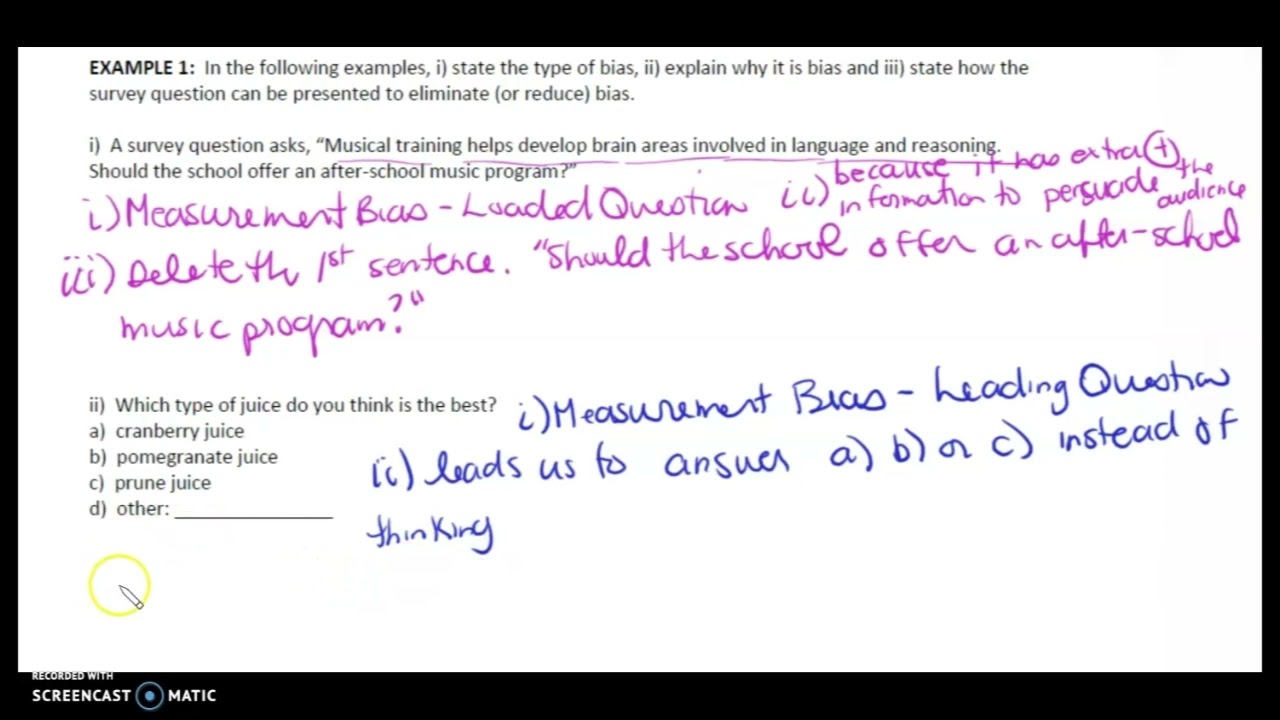 EXAMPLE 1: In the following examples, i) state the type of bias, ii) explain why it is bias and iii) state how the
survey question can be presented to eliminate (or reduce) bias.
i) A survey question asks, “Musical training helps develop brain areas involved in language and reasoning.
Should the school offer an after-school music program?”
i) Measurement Bias - Loaded Question
ii) because it has extra (+)
information to persuade the
audience
iii) Delete the 1st sentence. "Should the school offer an after-school
music program?"
ii) Which type of juice do you think is the best?
a) cranberry juice
b) pomegranate juice
c) prune juice
d) other: _______________
i) Measurement Bias - Leading Question
ii) leads us to answer a) b) or c) instead of
thinking
RECORDED WITH
SCREENCAST MATIC